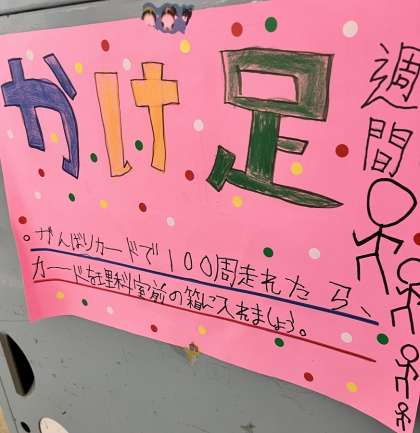 かけ足
週間
。がんばりカードで100周走れたら、
カードを理科室前の箱に入れましょう。